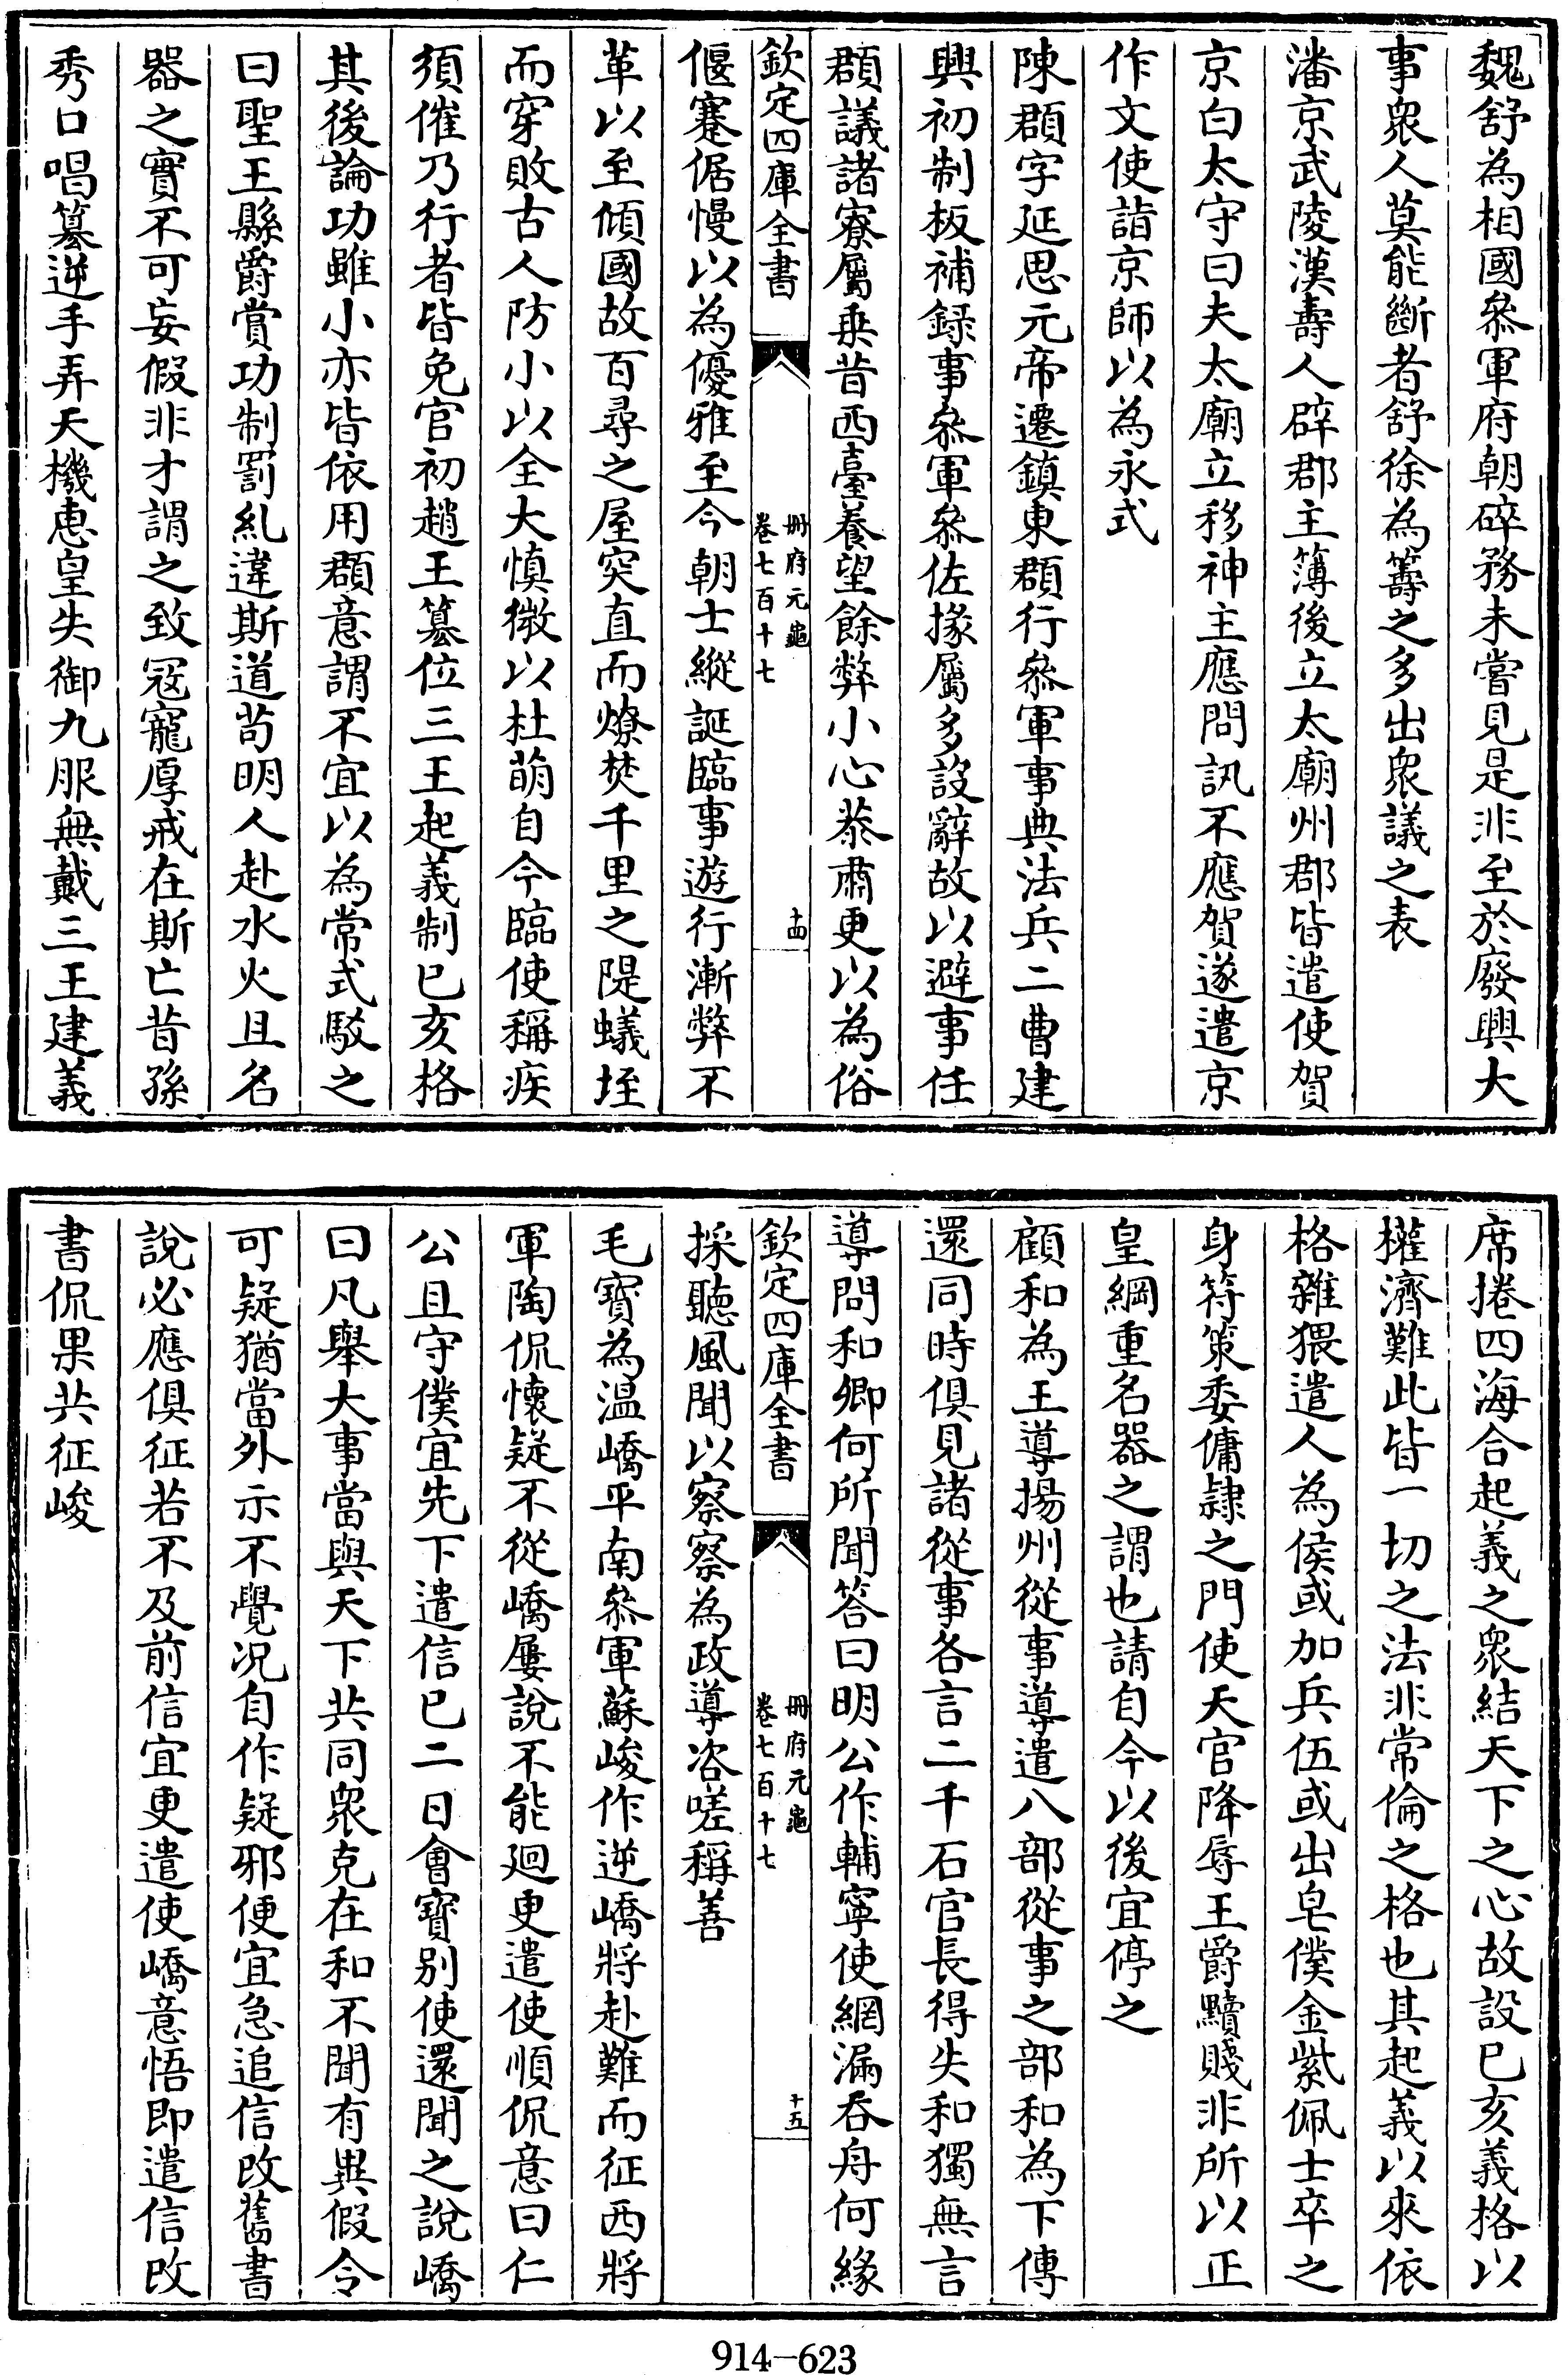 魏舒為相國叅軍府朝碎務未嘗見是非至於廢興大
事衆人莫能斷者舒徐為籌之多出衆議之表
潘京武陵漢壽人辟郡主簿後立太廟州郡皆遣使賀
京白太守曰夫太廟立移神主應問訊不應賀遂遣京
作文使詣京師以為永式
陳頵字延思元帝遷鎮東頵行叅軍事典法兵二曹建
興初制板補録事叅軍叅佐掾屬多設辭故以避事任
頵議諸寮屬乗昔西臺養望餘弊小心恭肅更以為俗
欽定四庫全書
冊府元龜
卷七百十七
十四
偃蹇倨慢以為優雅至今朝士縱誕臨事遊行漸弊不
革以至傾國故百尋之屋突直而燎焚千里之隄蟻垤
而穿敗古人防小以全大慎微以杜萌自今臨使稱疾
須催乃行者皆免官初趙王篡位三王起義制已亥格
其後論功雖小亦皆依用頵意謂不宜以為常式駁之
曰聖王縣爵賞功制罰糺違斯道苟明人赴水火且名
器之實不可妄假非才謂之致冦寵厚戒在斯亡昔孫
秀口唱篡逆手弄天機惠皇失御九服無戴三王建義
席捲四海合起義之衆結天下之心故設已亥義格以
權濟難此皆一切之法非常倫之格也其起義以來依
格雜猥遣人為侯或加兵伍或出皂僕金紫佩士卒之
身符策委傭隷之門使天官降辱王爵黷賤非所以正
皇綱重名器之謂也請自今以後宜停之
顧和為王導揚州從事導遣八部從事之部和為下傳
還同時俱見諸從事各言二千石官長得失和獨無言
導問和卿何所聞答曰明公作輔寜使網漏吞舟何緣
欽定四庫全書
冊府元龜
卷七百十七
十五
採聽風聞以察察為政導咨嗟稱善
毛寶為温嶠平南叅軍蘇峻作逆嶠將赴難而征西將
軍陶侃懷疑不從嶠屢說不能廻更遣使順侃意曰仁
公且守僕宜先下遣信已二日會寶别使還聞之說嶠
曰凡舉大事當與天下共同衆克在和不聞有異假令
可疑猶當外示不覺况自作疑邪便宜急追信改舊書
說必應俱征若不及前信宜更遣使嶠意悟即遣信改
書侃果共征峻
914—623